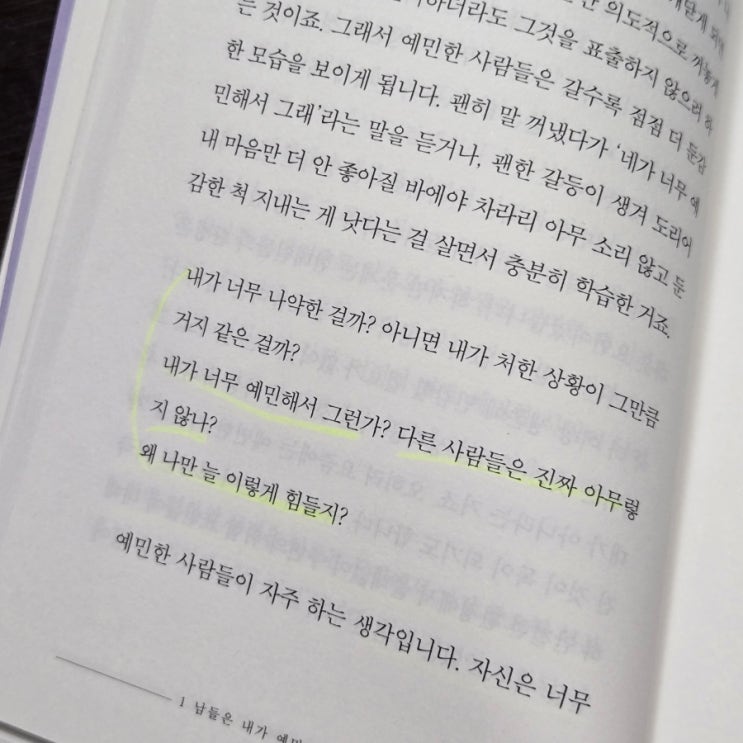 의도적으로
더라도 그것을 표출하지 않으려 하
는 것이죠. 그래서 예민한 사람들은 갈수록 점점 더 둔감
한 모습을 보이게 됩니다. 괜히 말 꺼냈다가 ‘네가 너무 예
민해서 그래’라는 말을 듣거나, 괜한 갈등이 생겨 도리어
내 마음만 더 안 좋아질 바에야 차라리 아무 소리 않고 둔
감한 척 지내는 게 낫다는 걸 살면서 충분히 학습한 거죠.
내가 너무 나약한 걸까? 아니면 내가 처한 상황이 그만큼
거지 같은 걸까?
내가 너무 예민해서 그런가? 다른 사람들은 진짜 아무렇
지 않나?
왜 나만 늘 이렇게 힘들지?
예민한 사람들이 자주 하는 생각입니다. 자신은 너무
1 남들은 내가